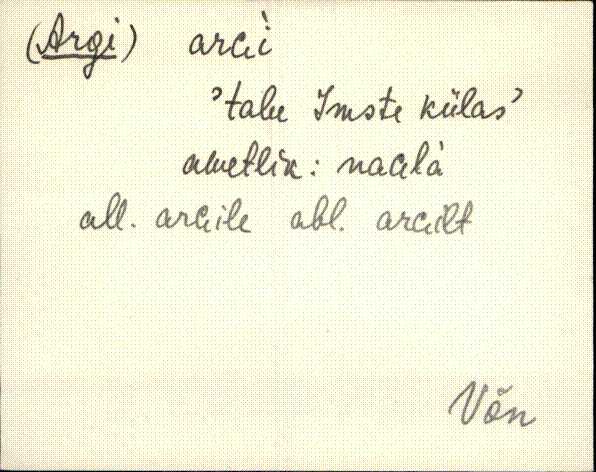 (Argi) arGì
'talu Imste külas'
ametlik: naGlà
all. arGile abl. arGilt
Võn